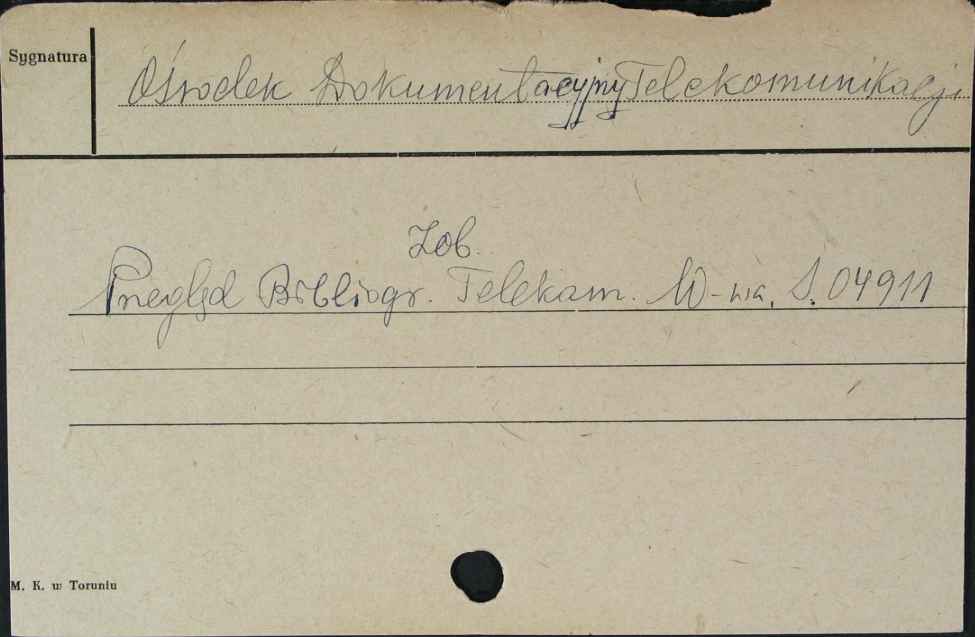 Sygnatura
Ośrodek Dokumentacyjny Telekomunikacji
Zob.
Przegląd Bibliogr. Telekom. W-wa, S. 04911
M. K. w Toruniu